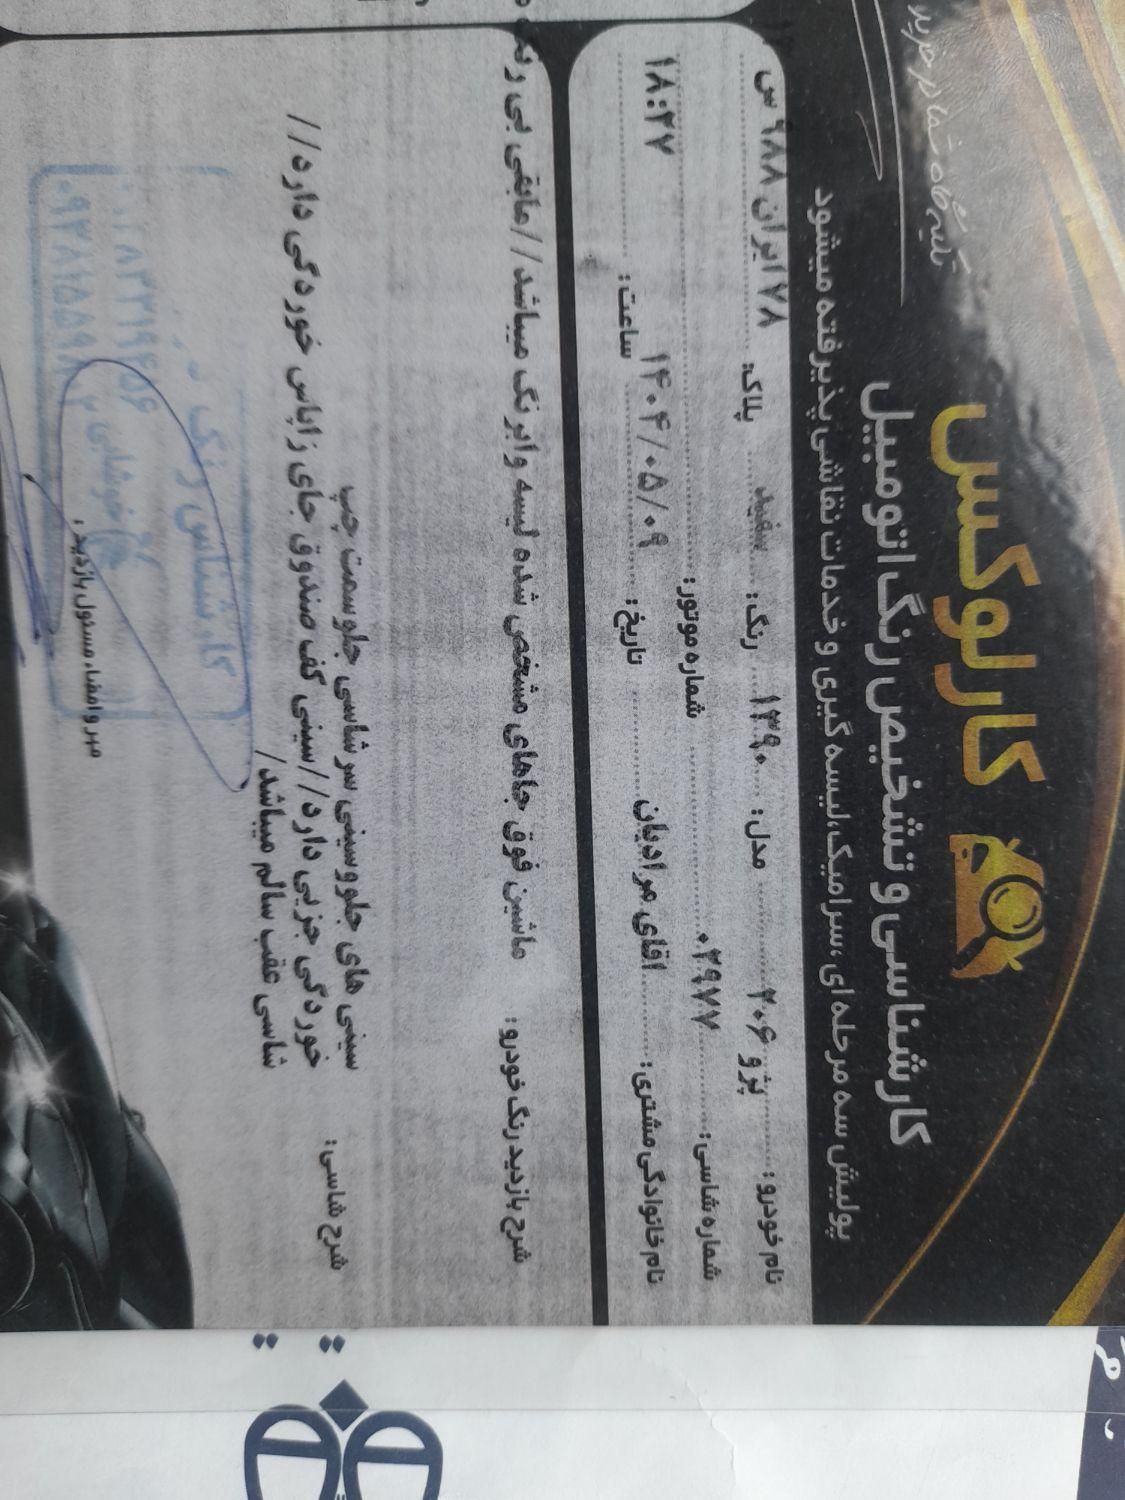 تکیه گاه شما در خرید
کارلوکس
کارشناسی و تشخیص رنگ اتومبیل
پولیش سه مرحله ای، سرامیک، لیسه گیری و خدمات نقاشی پذیرفته میشود
نام خودرو: پژو ۲۰۶ مدل: ۱۳۹۰ رنگ: سفید پلاک: ۷۸ ایران ۹۸۸ س
شماره شاسی: ۰۲۹۷۷ شماره موتور:
نام خانوادگی مشتری: اقای مرادیان تاریخ: ۱۴۰۴/۰۵/۰۹ ساعت: ۱۸:۲۷
شرح بازدید رنگ خودرو: ماشین فوق جاهای مشخص شده لیسه وابرنگ میباشد//مابقی بی رنگ
شرح شاسی: سینی های جلووسینی سرشاسی جلوسمت چپ
خوردگی جزیی دارد//سینی کف صندوق جای زاپاس خوردگی دارد//
شاسی عقب سالم میباشد/
کارشناس رنگ
مهر و امضاء مسئول بازدید: